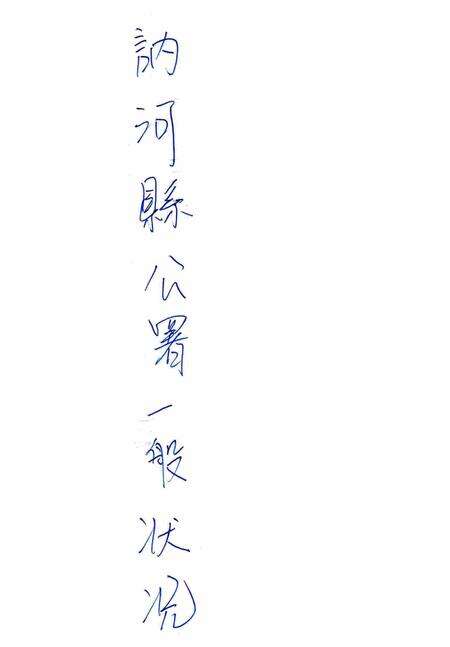 訥河縣公署一般状况